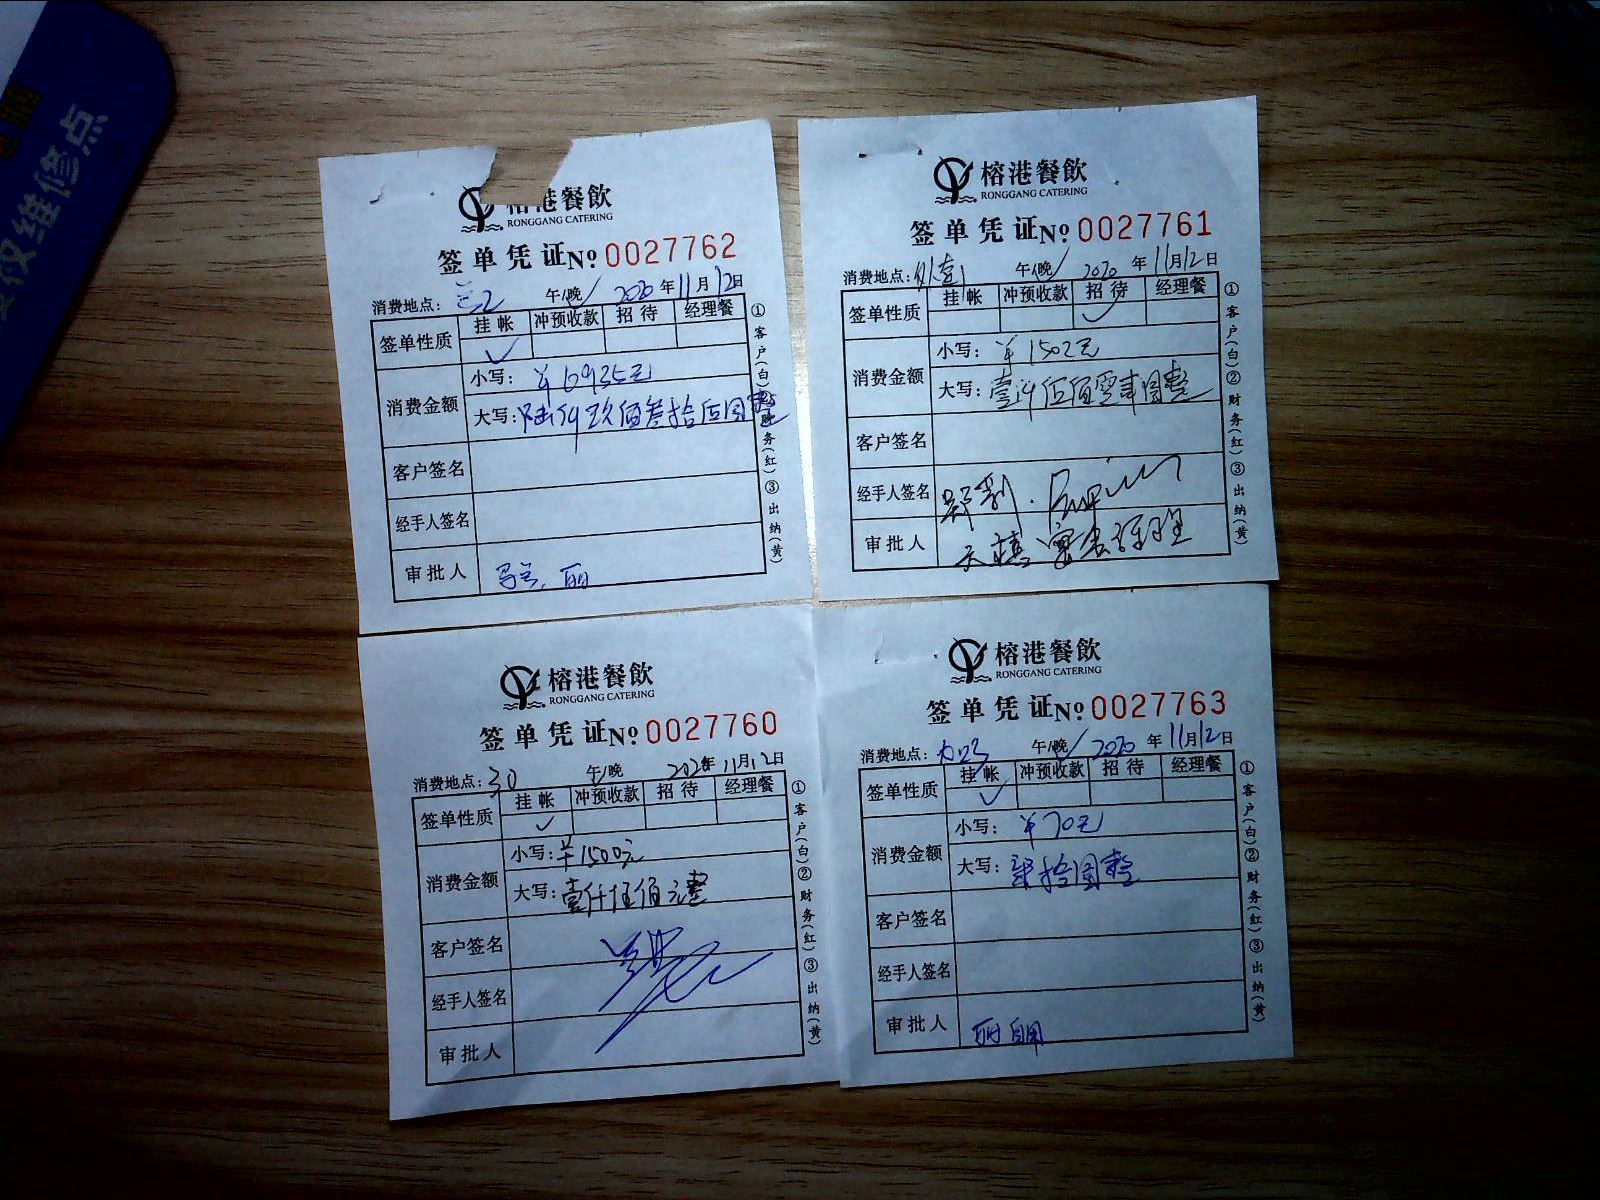 仪维修点
榕港餐飲
RONGGANG CATERING
签单凭证 No 0027762
消费地点: 午/晚 2020 年 11月12日
签单性质 挂帐 冲预收款 招待 经理餐
✓
消费金额 小写: ¥6935元
大写: 陆仟玖佰叁拾伍圆整
客户签名
经手人签名
审批人
①客户(白)②财务(红)③出纳(黄)
榕港餐飲
RONGGANG CATERING
签单凭证 No 0027761
消费地点: 午/晚 2020 年 11月12日
签单性质 挂帐 冲预收款 招待 经理餐
✓
消费金额 小写: ¥1502元
大写: 壹仟伍佰零贰圆整
客户签名
经手人签名
审批人
①客户(白)②财务(红)③出纳(黄)
榕港餐飲
RONGGANG CATERING
签单凭证 No 0027760
消费地点: 30 午/晚 2020年 11月12日
签单性质 挂帐 冲预收款 招待 经理餐
✓
消费金额 小写: ¥1500元
大写: 壹仟伍佰元整
客户签名
经手人签名
审批人
①客户(白)②财务(红)③出纳(黄)
榕港餐飲
RONGGANG CATERING
签单凭证 No 0027763
消费地点: 午/晚 2020 年 11月12日
签单性质 挂帐 冲预收款 招待 经理餐
✓
消费金额 小写: ¥70元
大写: 柒拾圆整
客户签名
经手人签名
审批人
①客户(白)②财务(红)③出纳(黄)